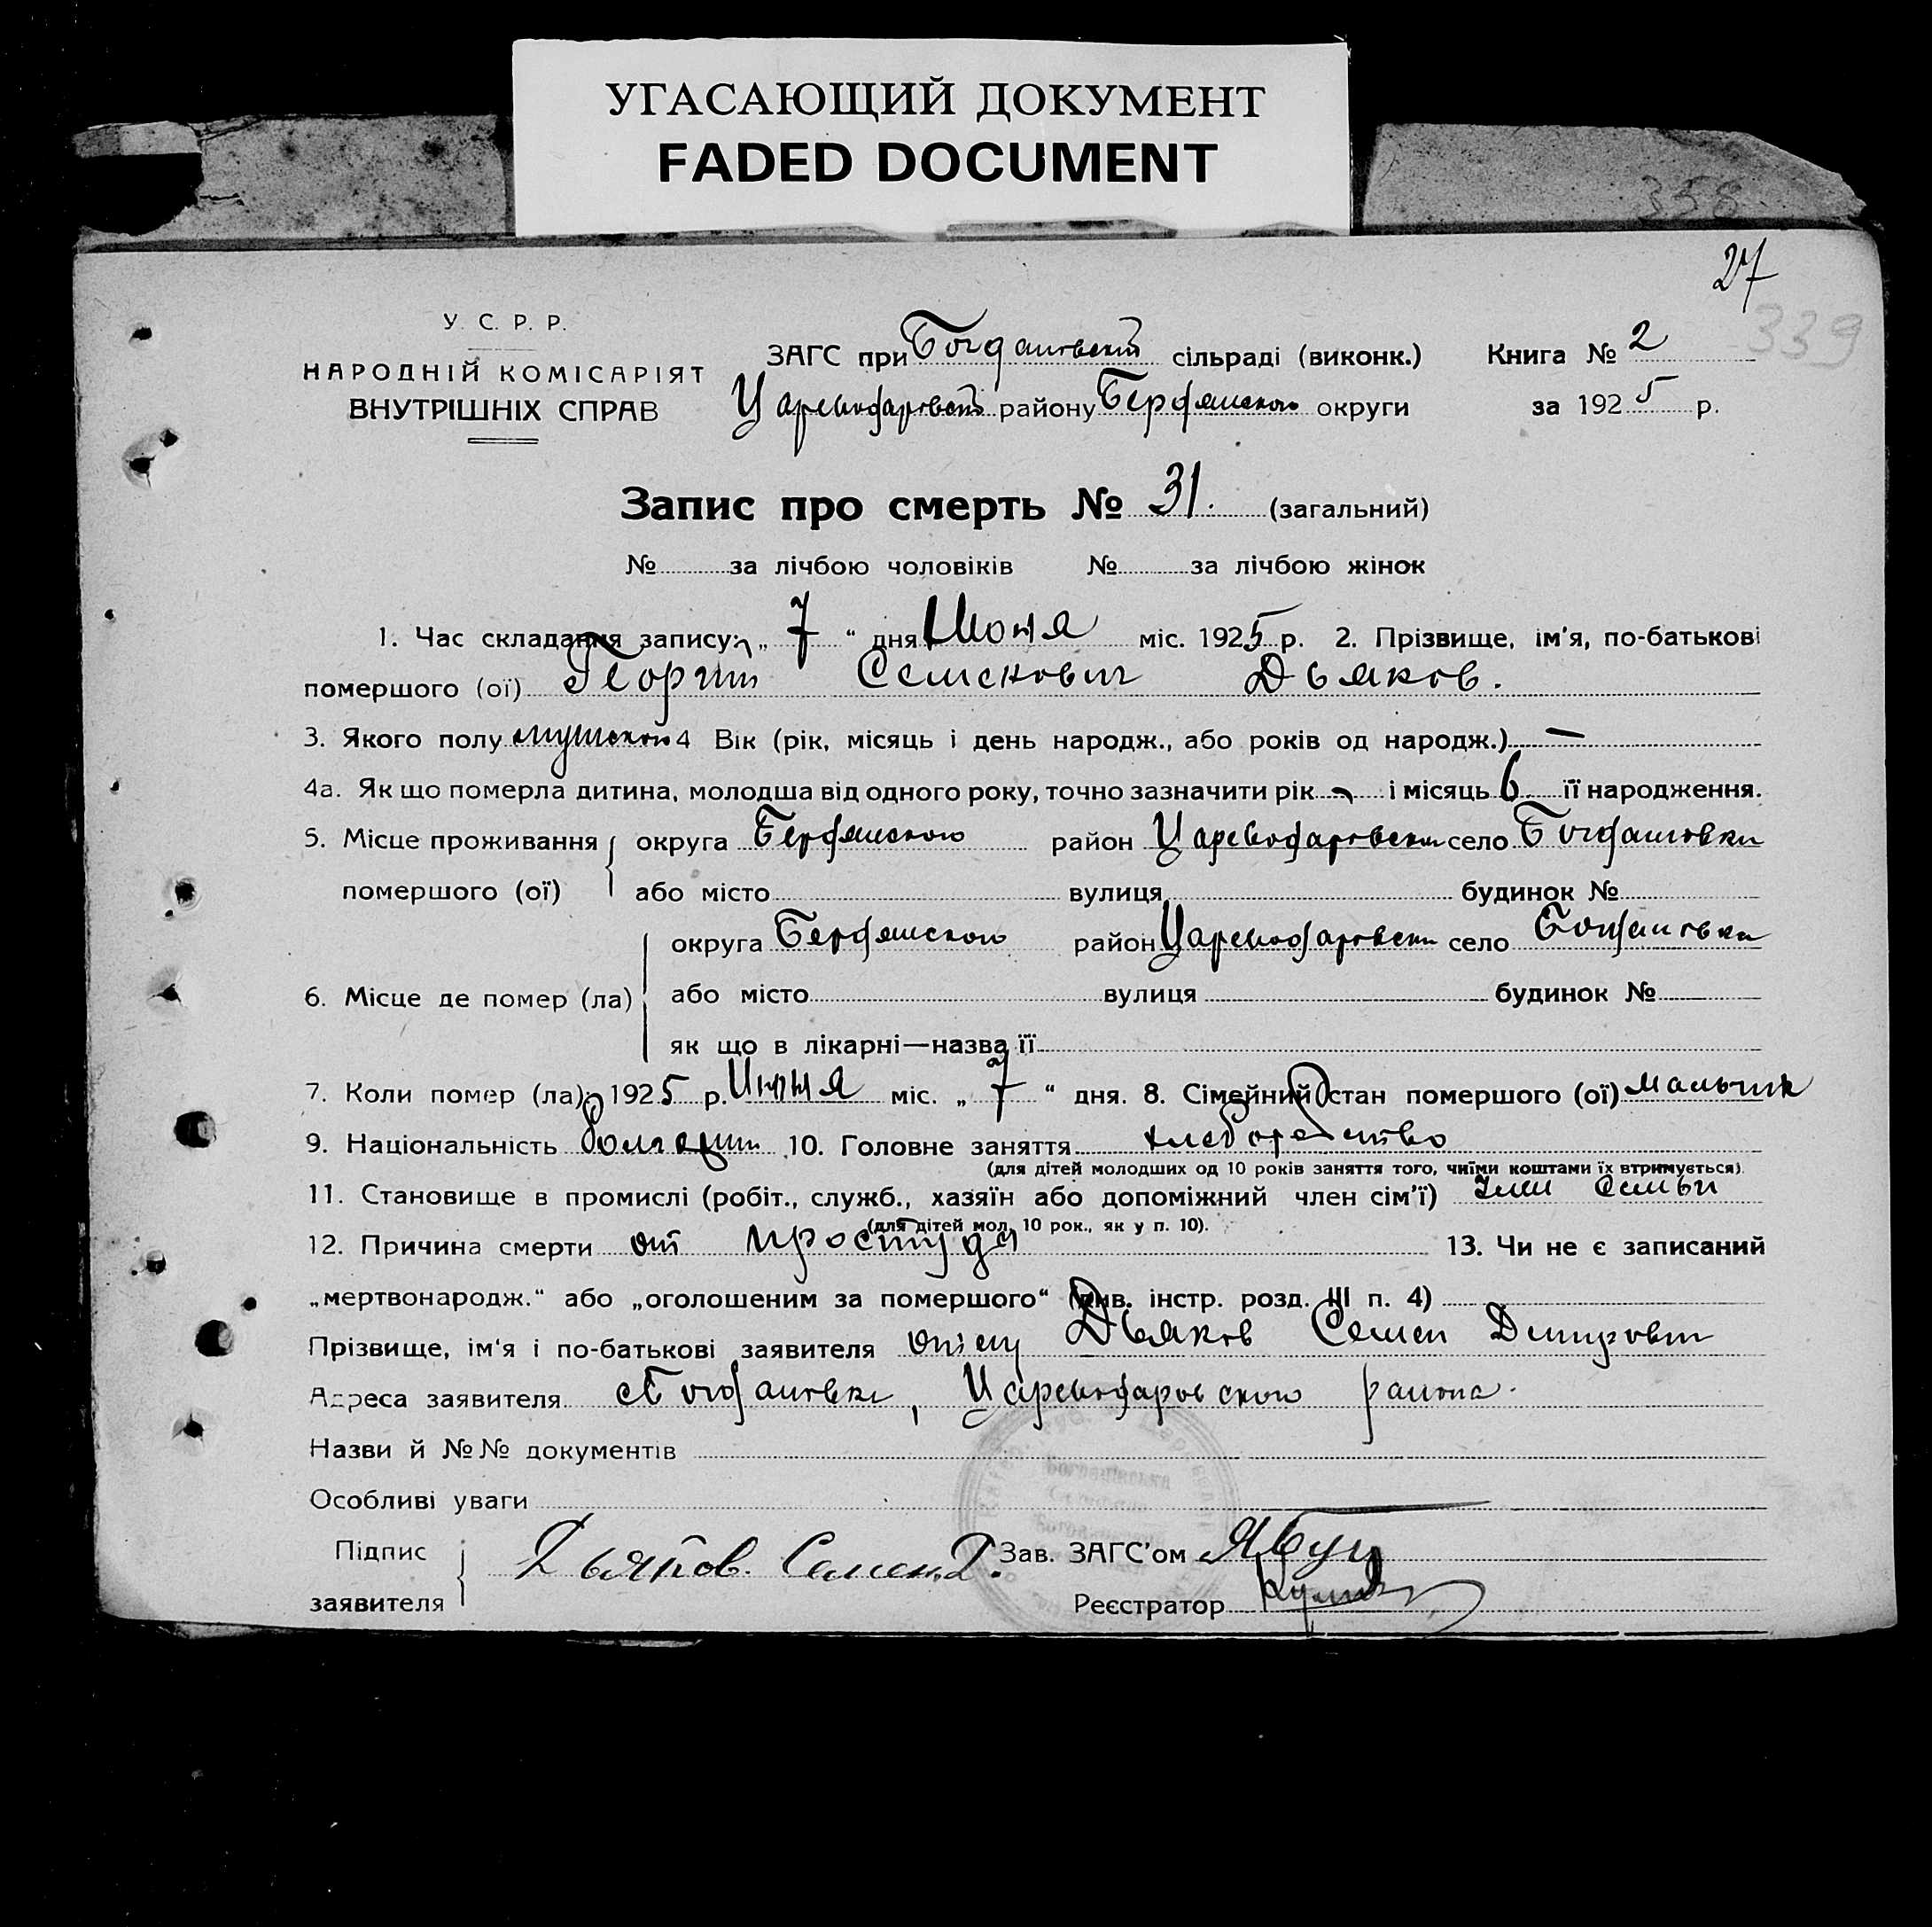 УГАСАЮЩИЙ ДОКУМЕНТ
FADED DOCUMENT
358
27
339
У. С. Р. Р.
НАРОДНІЙ КОМІСАРІЯТ
ВНУТРІШНІХ СПРАВ
ЗАГС при Богдановской сільраді (виконк.) Книга № 2
Цареводаровского району Бердянского округи за 1925 р.
Запис про смерть № 31. (загальний)
№ за лічбою чоловіків № за лічбою жінок
1. Час складання запису: „ 7 “ дня Июня міс. 1925 р. 2. Прізвище, ім'я, по-батькові
помершого (ої) Георгий Семенович Дьяков.
3. Якого полу мужского 4 Вік (рік, місяць і день народж., або років од народж.) —
4а. Як що померла дитина, молодша від одного року, точно зазначити рік - і місяць 6 її народження.
5. Місце проживання округа Бердянского район Цареводаровский село Богдановки
помершого (ої) або місто вулиця будинок №
округа Бердянского район Цареводаровский село Богдановка
6. Місце де помер (ла) або місто вулиця будинок №
як що в лікарні—назва її
7. Коли помер (ла) 1925 р. Июня міс. „ 7 “ дня. 8. Сімейний стан помершого (ої) мальчик
9. Національність болгарин 10. Головне заняття хлеборобство
(для дітей молодших од 10 років заняття того, чиїми коштами їх втримується).
11. Становище в промислі (робіт., служб., хазяїн або допоміжний член сім'ї) член семьи
(для дітей мол. 10 рок., як у п. 10).
12. Причина смерти от простуда 13. Чи не є записаний
„мертвонародж.“ або „оголошеним за помершого“ (див. інстр. розд. III п. 4)
Прізвище, ім'я і по-батькові заявителя отец Дьяков Семен Дмитрович
Адреса заявителя с Богдановки, Цареводаровского района.
Назви й №№ документів
Особливі уваги
Підпис Дьяков. Семен. Д. Зав. ЗАГС'ом
заявителя Реєстратор